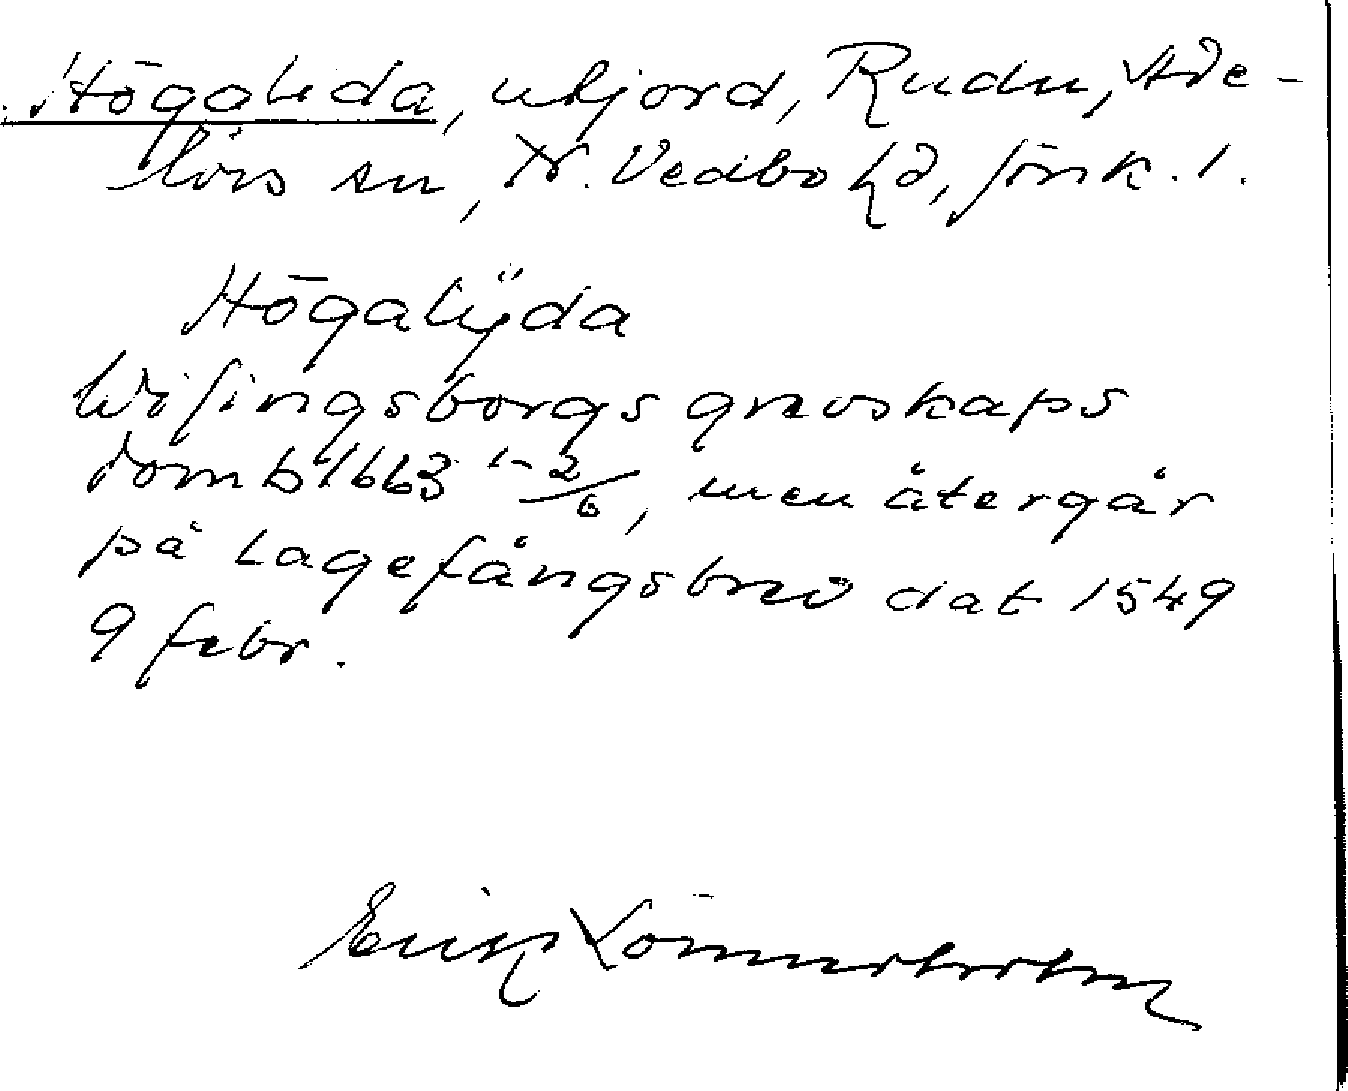 Högalida, utjord, Rudu, Ade-
lövs sn, N. Vedbo hd, Jönk. l.
Högalÿda
Wisingsborgs grevskaps
domb 1663 1-2/6, men återgår
på Lagefångsbrev dat 1549
9 febr.
Erik Lönnerholm